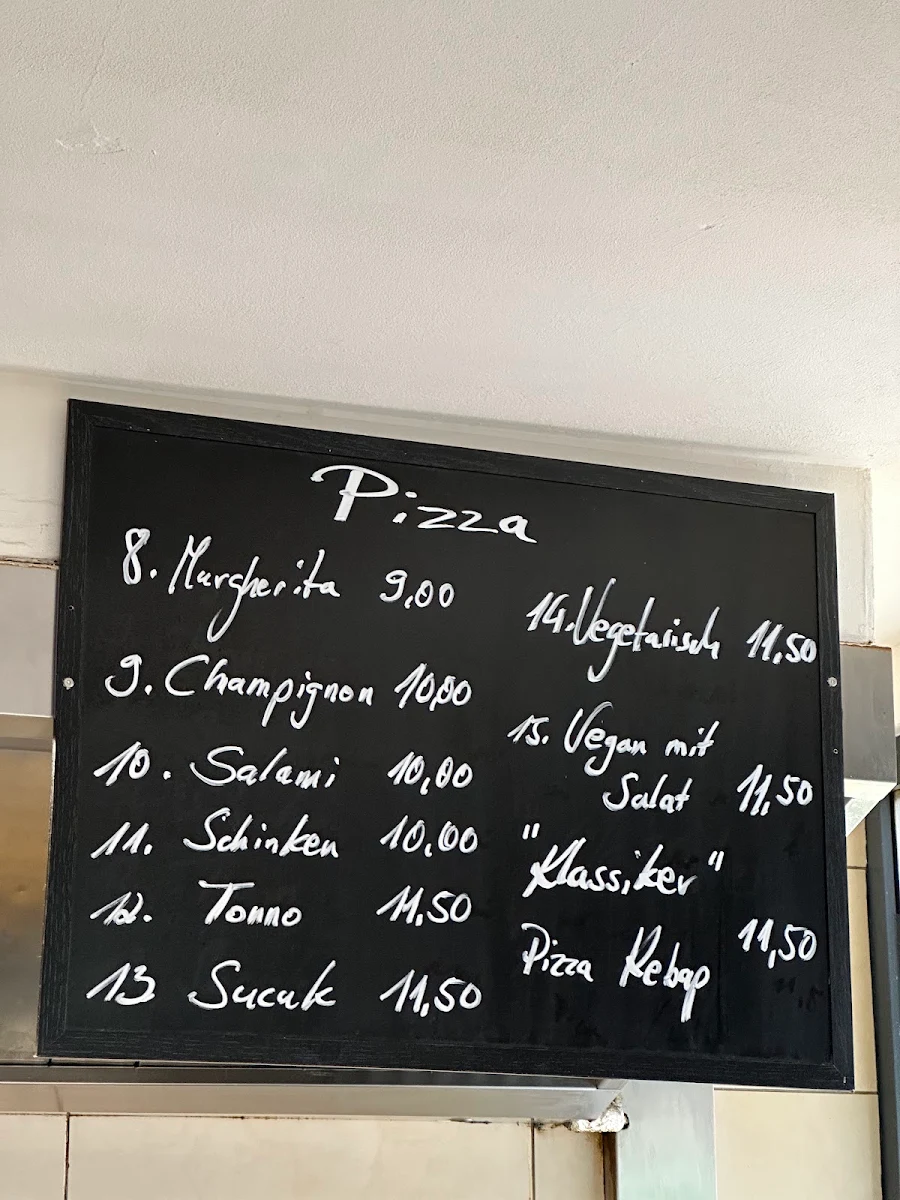 Pizza
8. Margherita 9,00
9. Champignon 10,00
10. Salami 10,00
11. Schinken 10,00
12. Tonno 11,50
13 Sucuk 11,50
14. Vegetarisch 11,50
15. Vegan mit
Salat 11,50
"Klassiker"
Pizza Kebap 11,50